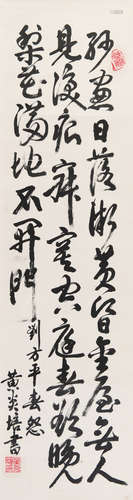 紗窗日落漸黃昏金屋無人
見淚痕寂寞空庭春欲晚
梨花滿地不開門
劉方平春怨
黃炎培書